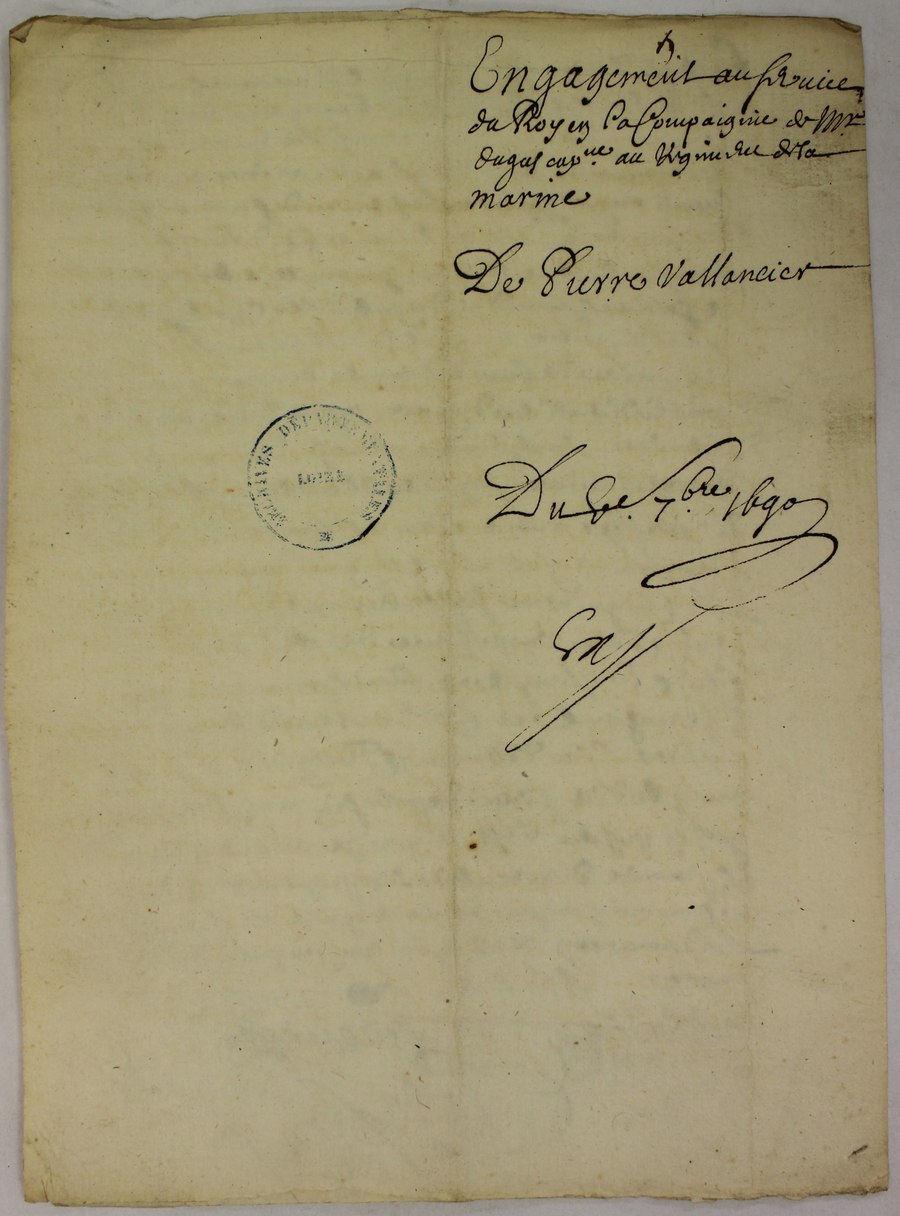 Engagement au service
du Roy en la Compaignie de Mr
dugas capne au Regiment de la
marine
De Pierre Vallancier
ARCHIVES DÉPARTEMENTALES
LOIRE
Du 7bre 1690